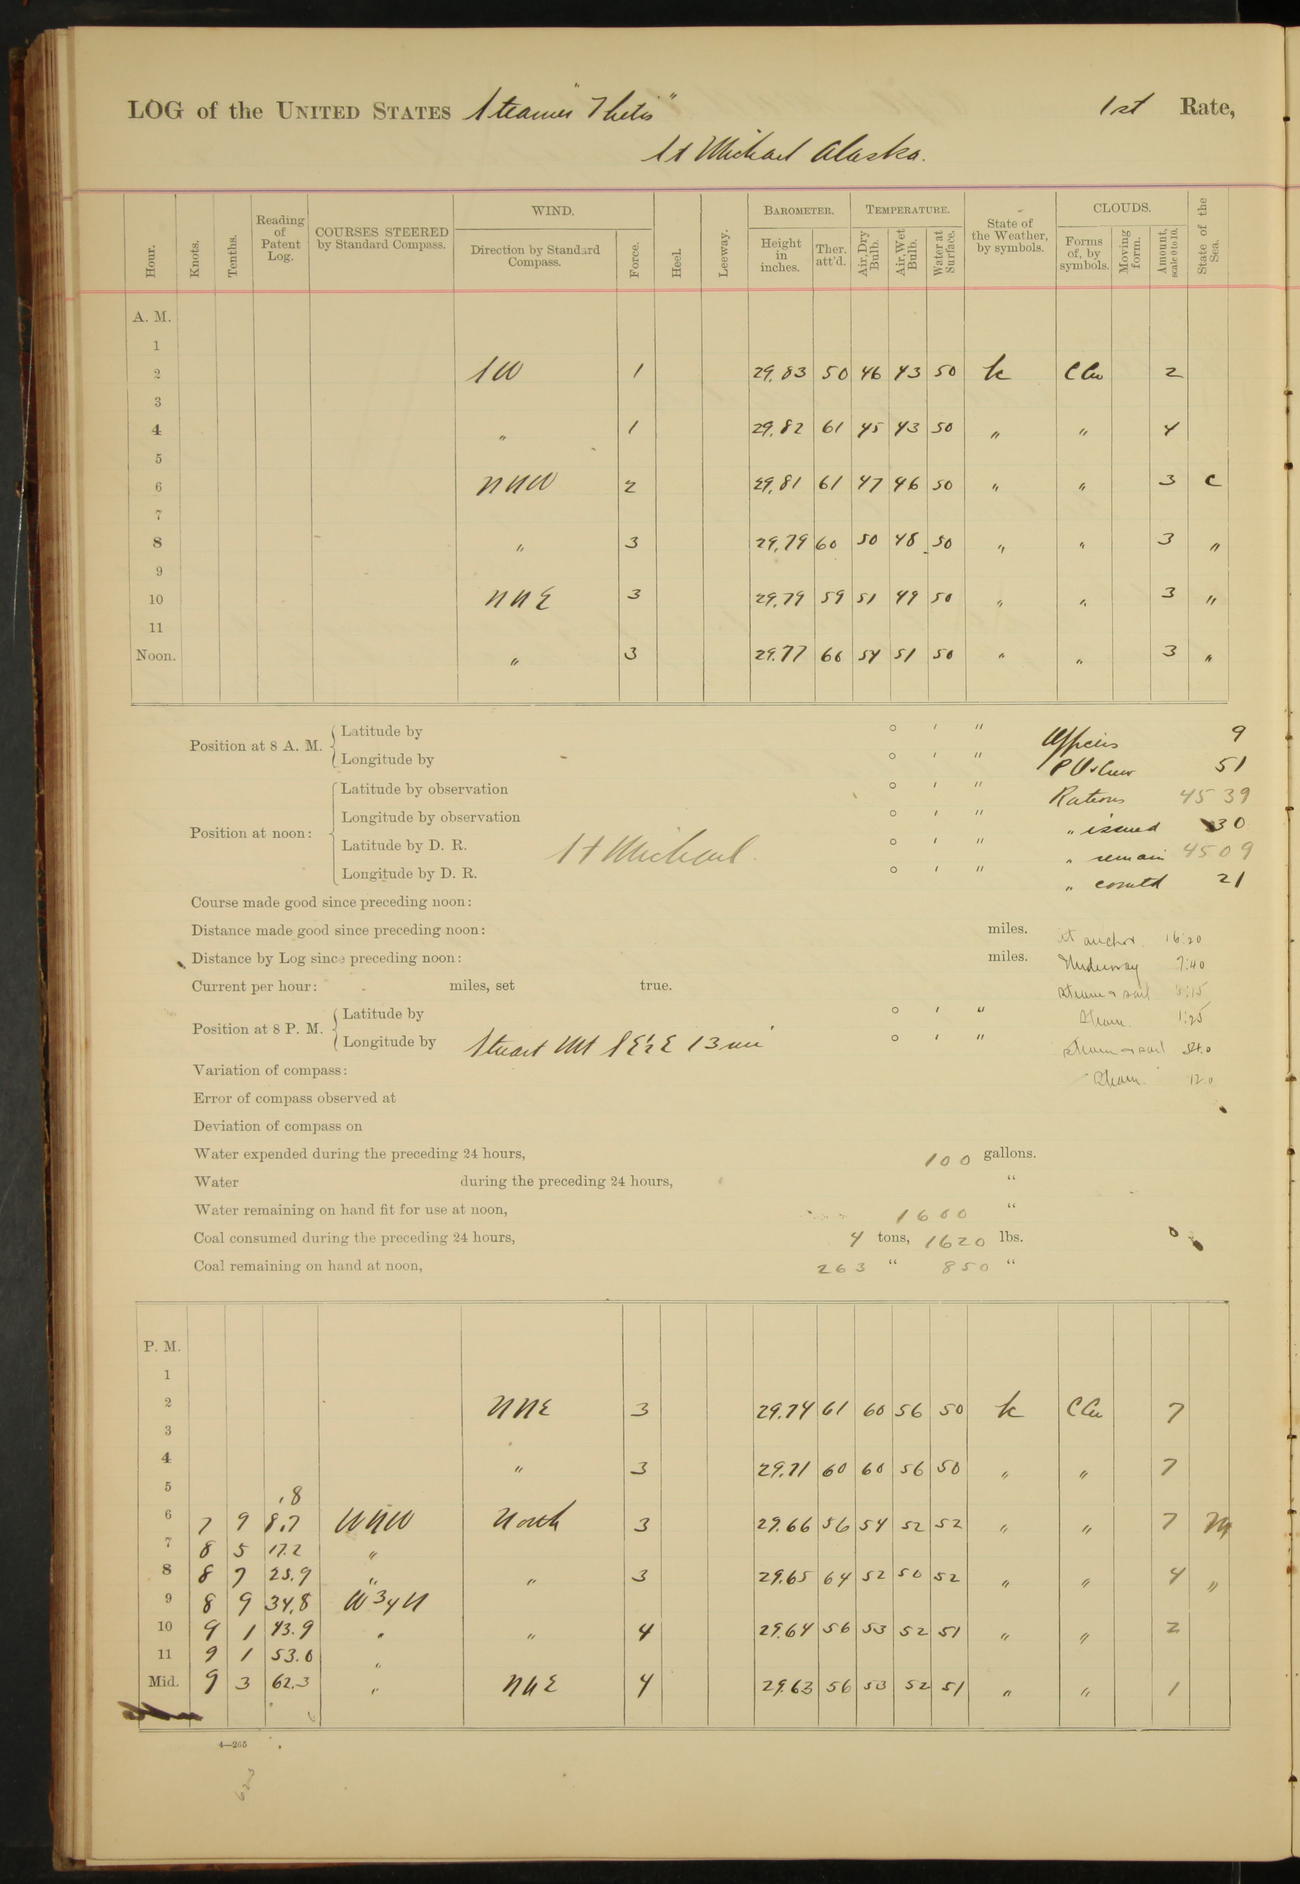 LOG of the UNITED STATES Steamer "Thetis" 1st Rate,
St Michael Alaska.
Hour. Knots. Tenths. Reading of Patent Log. COURSES STEERED by Standard Compass. WIND. Direction by Standard Compass. Force. Heel. Leeway. BAROMETER. Height in inches. Ther. att'd. TEMPERATURE. Air, Dry Bulb. Air, Wet Bulb. Water at Surface. State of the Weather, by symbols. CLOUDS. Forms of, by symbols. Moving form. Amount, scale 0 to 10. State of the Sea.
A. M.
1
2 SW 1 29.83 50 46 43 50 bc C Cu 2
3
4 " 1 29.82 61 45 43 50 " " 4
5
6 NNW 2 29.81 61 47 46 50 " " 3 C
7
8 " 3 29.79 60 50 48 50 " " 3 "
9
10 NNE 3 29.79 59 51 49 50 " " 3 "
11
Noon. " 3 29.77 66 54 51 50 " " 3 "
Position at 8 A. M. Latitude by ° ' " Officers 9
Longitude by ° ' " P O & Crew 51
Position at noon: Latitude by observation ° ' " Rations 4539
Longitude by observation ° ' " " issued 30
Latitude by D. R. St Michael ° ' " " remain 4509
Longitude by D. R. ° ' " " comtd 21
Course made good since preceding noon:
Distance made good since preceding noon: miles. at anchor 16:20
Distance by Log since preceding noon: miles. Underway 7:40
Current per hour: miles, set true. Steam & sail
Position at 8 P. M. Latitude by ° ' " Steam. 1:25
Longitude by Stuart Mt SE½E 13 mi ° ' " Steam & sail
Variation of compass: Steam. 12.0
Error of compass observed at
Deviation of compass on
Water expended during the preceding 24 hours, 100 gallons.
Water during the preceding 24 hours, "
Water remaining on hand fit for use at noon, 1600 "
Coal consumed during the preceding 24 hours, 4 tons, 1620 lbs.
Coal remaining on hand at noon, 263 " 850 "
P. M.
1
2 NNE 3 29.74 61 60 56 50 bc C Cu 7
3
4 " 3 29.71 60 60 56 50 " " 7
5 .8
6 7 9 8.7 WNW North 3 29.66 56 54 52 52 " " 7 M
7 8 5 17.2 "
8 8 7 25.9 " " 3 29.65 64 52 50 52 " " 4 "
9 8 9 34.8 W¾N
10 9 1 43.9 " " 4 29.64 56 53 52 51 " " 2
11 9 1 53.0 "
Mid. 9 3 62.3 " NNE 4 29.63 56 53 52 51 " " 1
4—265